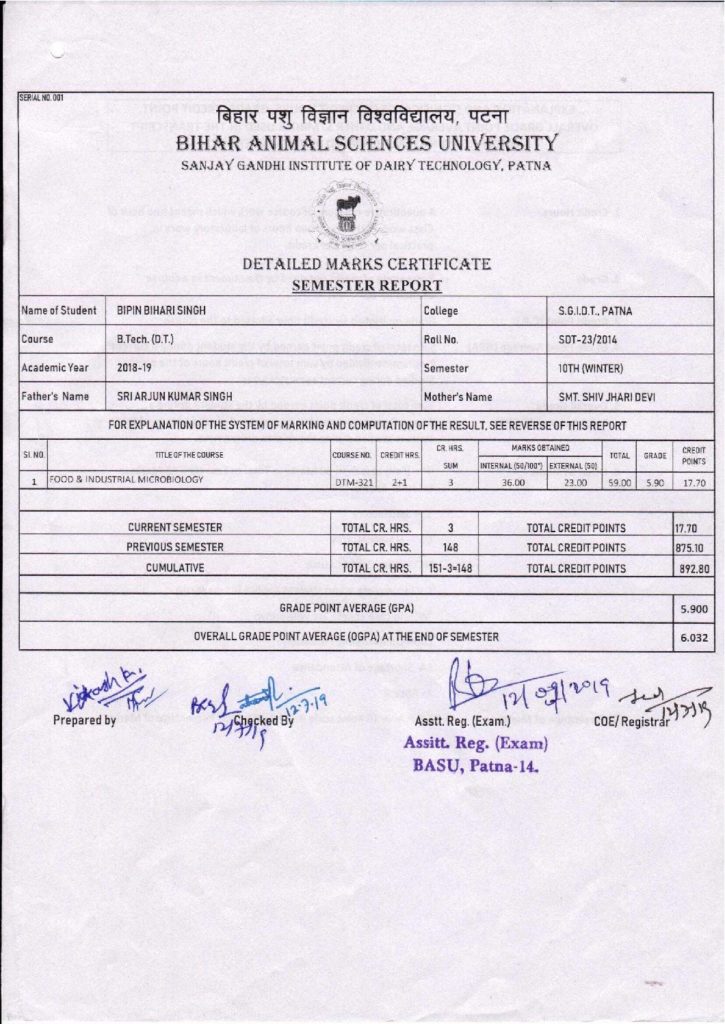 SERIAL NO. 001
बिहार पशु विज्ञान विश्वविद्यालय, पटना
BIHAR ANIMAL SCIENCES UNIVERSITY
SANJAY GANDHI INSTITUTE OF DAIRY TECHNOLOGY, PATNA
DETAILED MARKS CERTIFICATE
SEMESTER REPORT
Name of Student BIPIN BIHARI SINGH College S.G.I.D.T., PATNA
Course B.Tech. (D.T.) Roll No. SDT-23/2014
Academic Year 2018-19 Semester 10TH (WINTER)
Father's Name SRI ARJUN KUMAR SINGH Mother's Name SMT. SHIV JHARI DEVI
FOR EXPLANATION OF THE SYSTEM OF MARKING AND COMPUTATION OF THE RESULT, SEE REVERSE OF THIS REPORT
Sl. NO. TITLE OF THE COURSE COURSE NO. CREDIT HRS. CR. HRS. SUM MARKS OBTAINED INTERNAL (50/100*) EXTERNAL (50) TOTAL GRADE CREDIT POINTS
1 FOOD & INDUSTRIAL MICROBIOLOGY DTM-321 2+1 3 36.00 23.00 59.00 5.90 17.70
CURRENT SEMESTER TOTAL CR. HRS. 3 TOTAL CREDIT POINTS 17.70
PREVIOUS SEMESTER TOTAL CR. HRS. 148 TOTAL CREDIT POINTS 875.10
CUMULATIVE TOTAL CR. HRS. 151-3=148 TOTAL CREDIT POINTS 892.80
GRADE POINT AVERAGE (GPA) 5.900
OVERALL GRADE POINT AVERAGE (OGPA) AT THE END OF SEMESTER 6.032
12/07/2019
12.7.19
12/7/19
12/7/19
Prepared by Checked By Asstt. Reg. (Exam.) COE/ Registrar
Assitt. Reg. (Exam)
BASU, Patna-14.